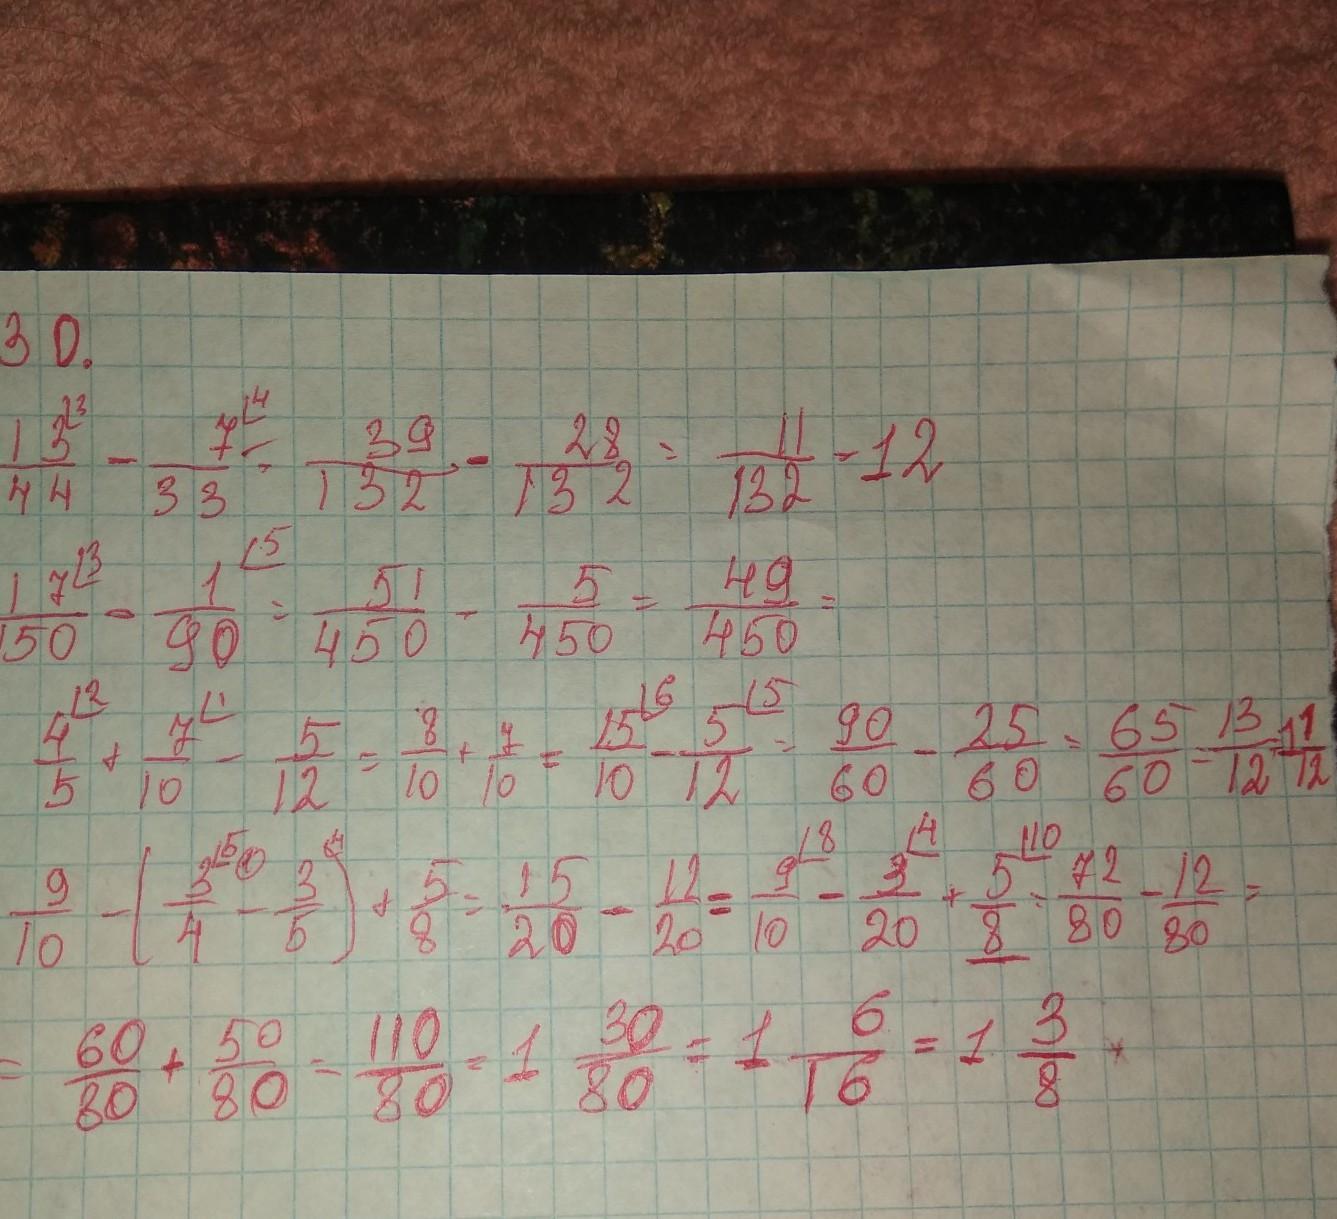 30.
13⌊3/44 - 7⌊4/33 = 39/132 - 28/132 = 11/132 - 12
17⌊3/150 - 1⌊5/90 = 51/450 - 5/450 = 49/450 =
4⌊2/5 + 7⌊1/10 - 5/12 = 8/10 + 7/10 = 15⌊6/10 - 5⌊5/12 = 90/60 - 25/60 = 65/60 = 13/12 = 1 1/12
9/10 - (3⌊5/4 - 3⌊4/5) + 5/8 = 15/20 - 12/20 = 9⌊8/10 - 3⌊4/20 + 5⌊10/8 = 72/80 - 12/80 =
= 60/80 + 50/80 = 110/80 = 1 30/80 = 1 6/16 = 1 3/8